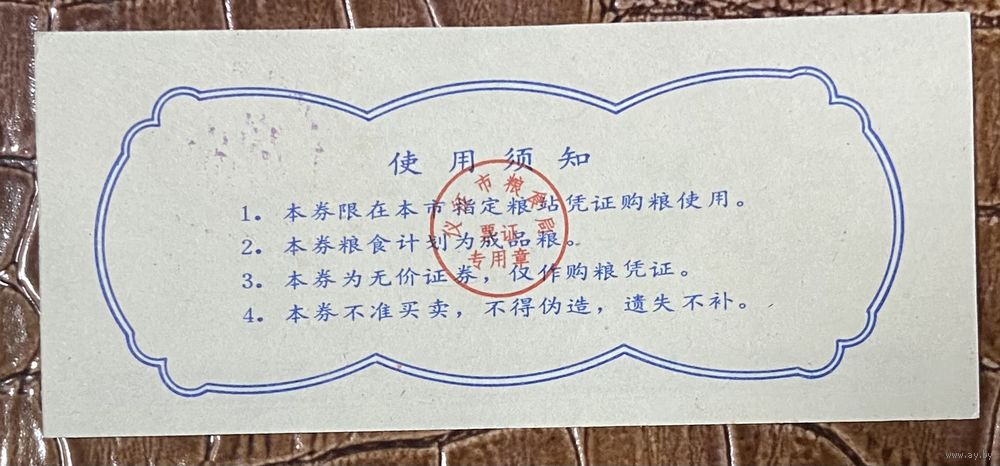 使用须知
1. 本券限在本市指定粮站凭证购粮使用。
2. 本券粮食计划为成品粮。
3. 本券为无价证券，仅作购粮凭证。
4. 本券不准买卖，不得伪造，遗失不补。
仪征市粮食局
票证
专用章
www.ay.by